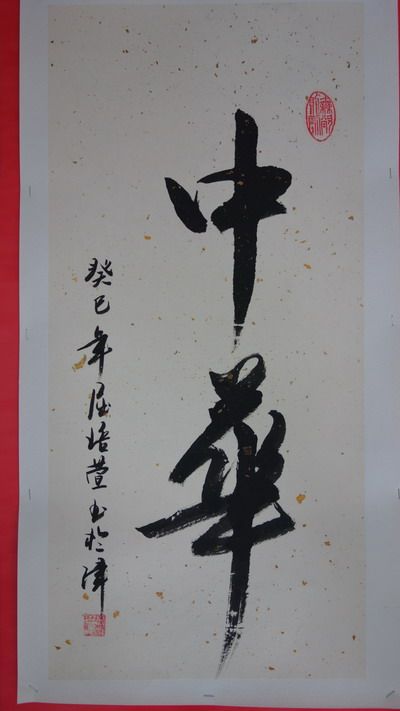 中華
癸巳年屈培萱書於津